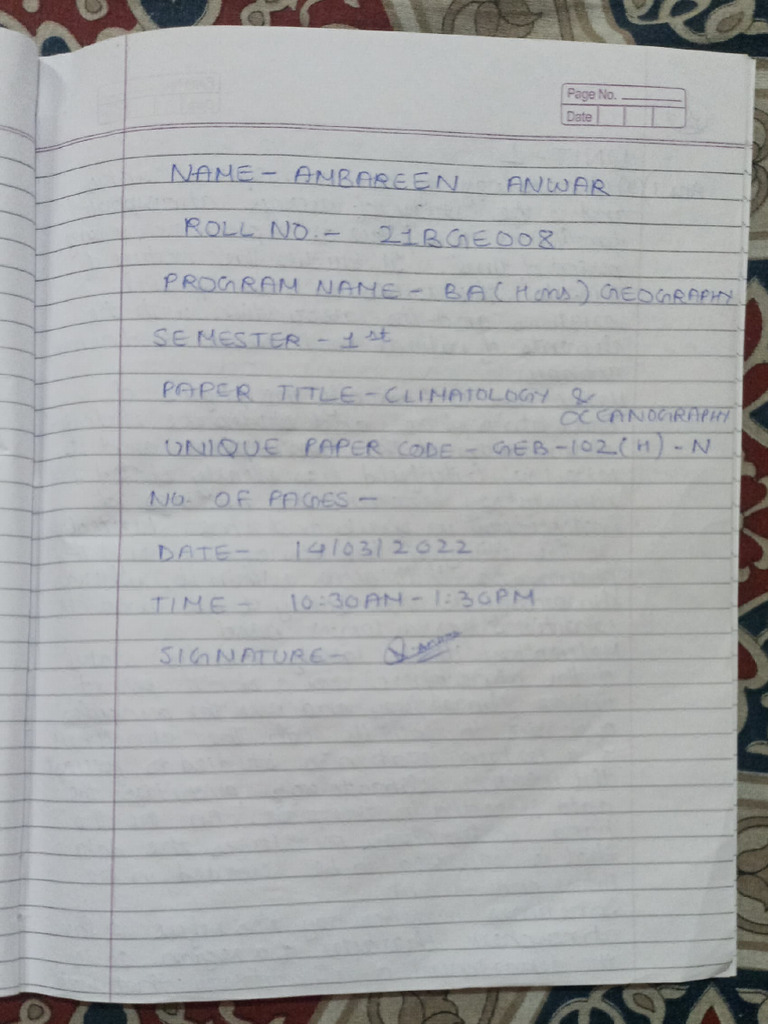 Page No.
Date
NAME - AMBAREEN ANWAR
ROLL NO. - 21BGE008
PROGRAM NAME - BA (Hons.) GEOGRAPHY
SEMESTER - 1st
PAPER TITLE - CLIMATOLOGY &
OCEANOGRAPHY
UNIQUE PAPER CODE - GEB-102(H)-N
NO. OF PAGES -
DATE - 14/03/2022
TIME - 10:30AM - 1:30PM
SIGNATURE -